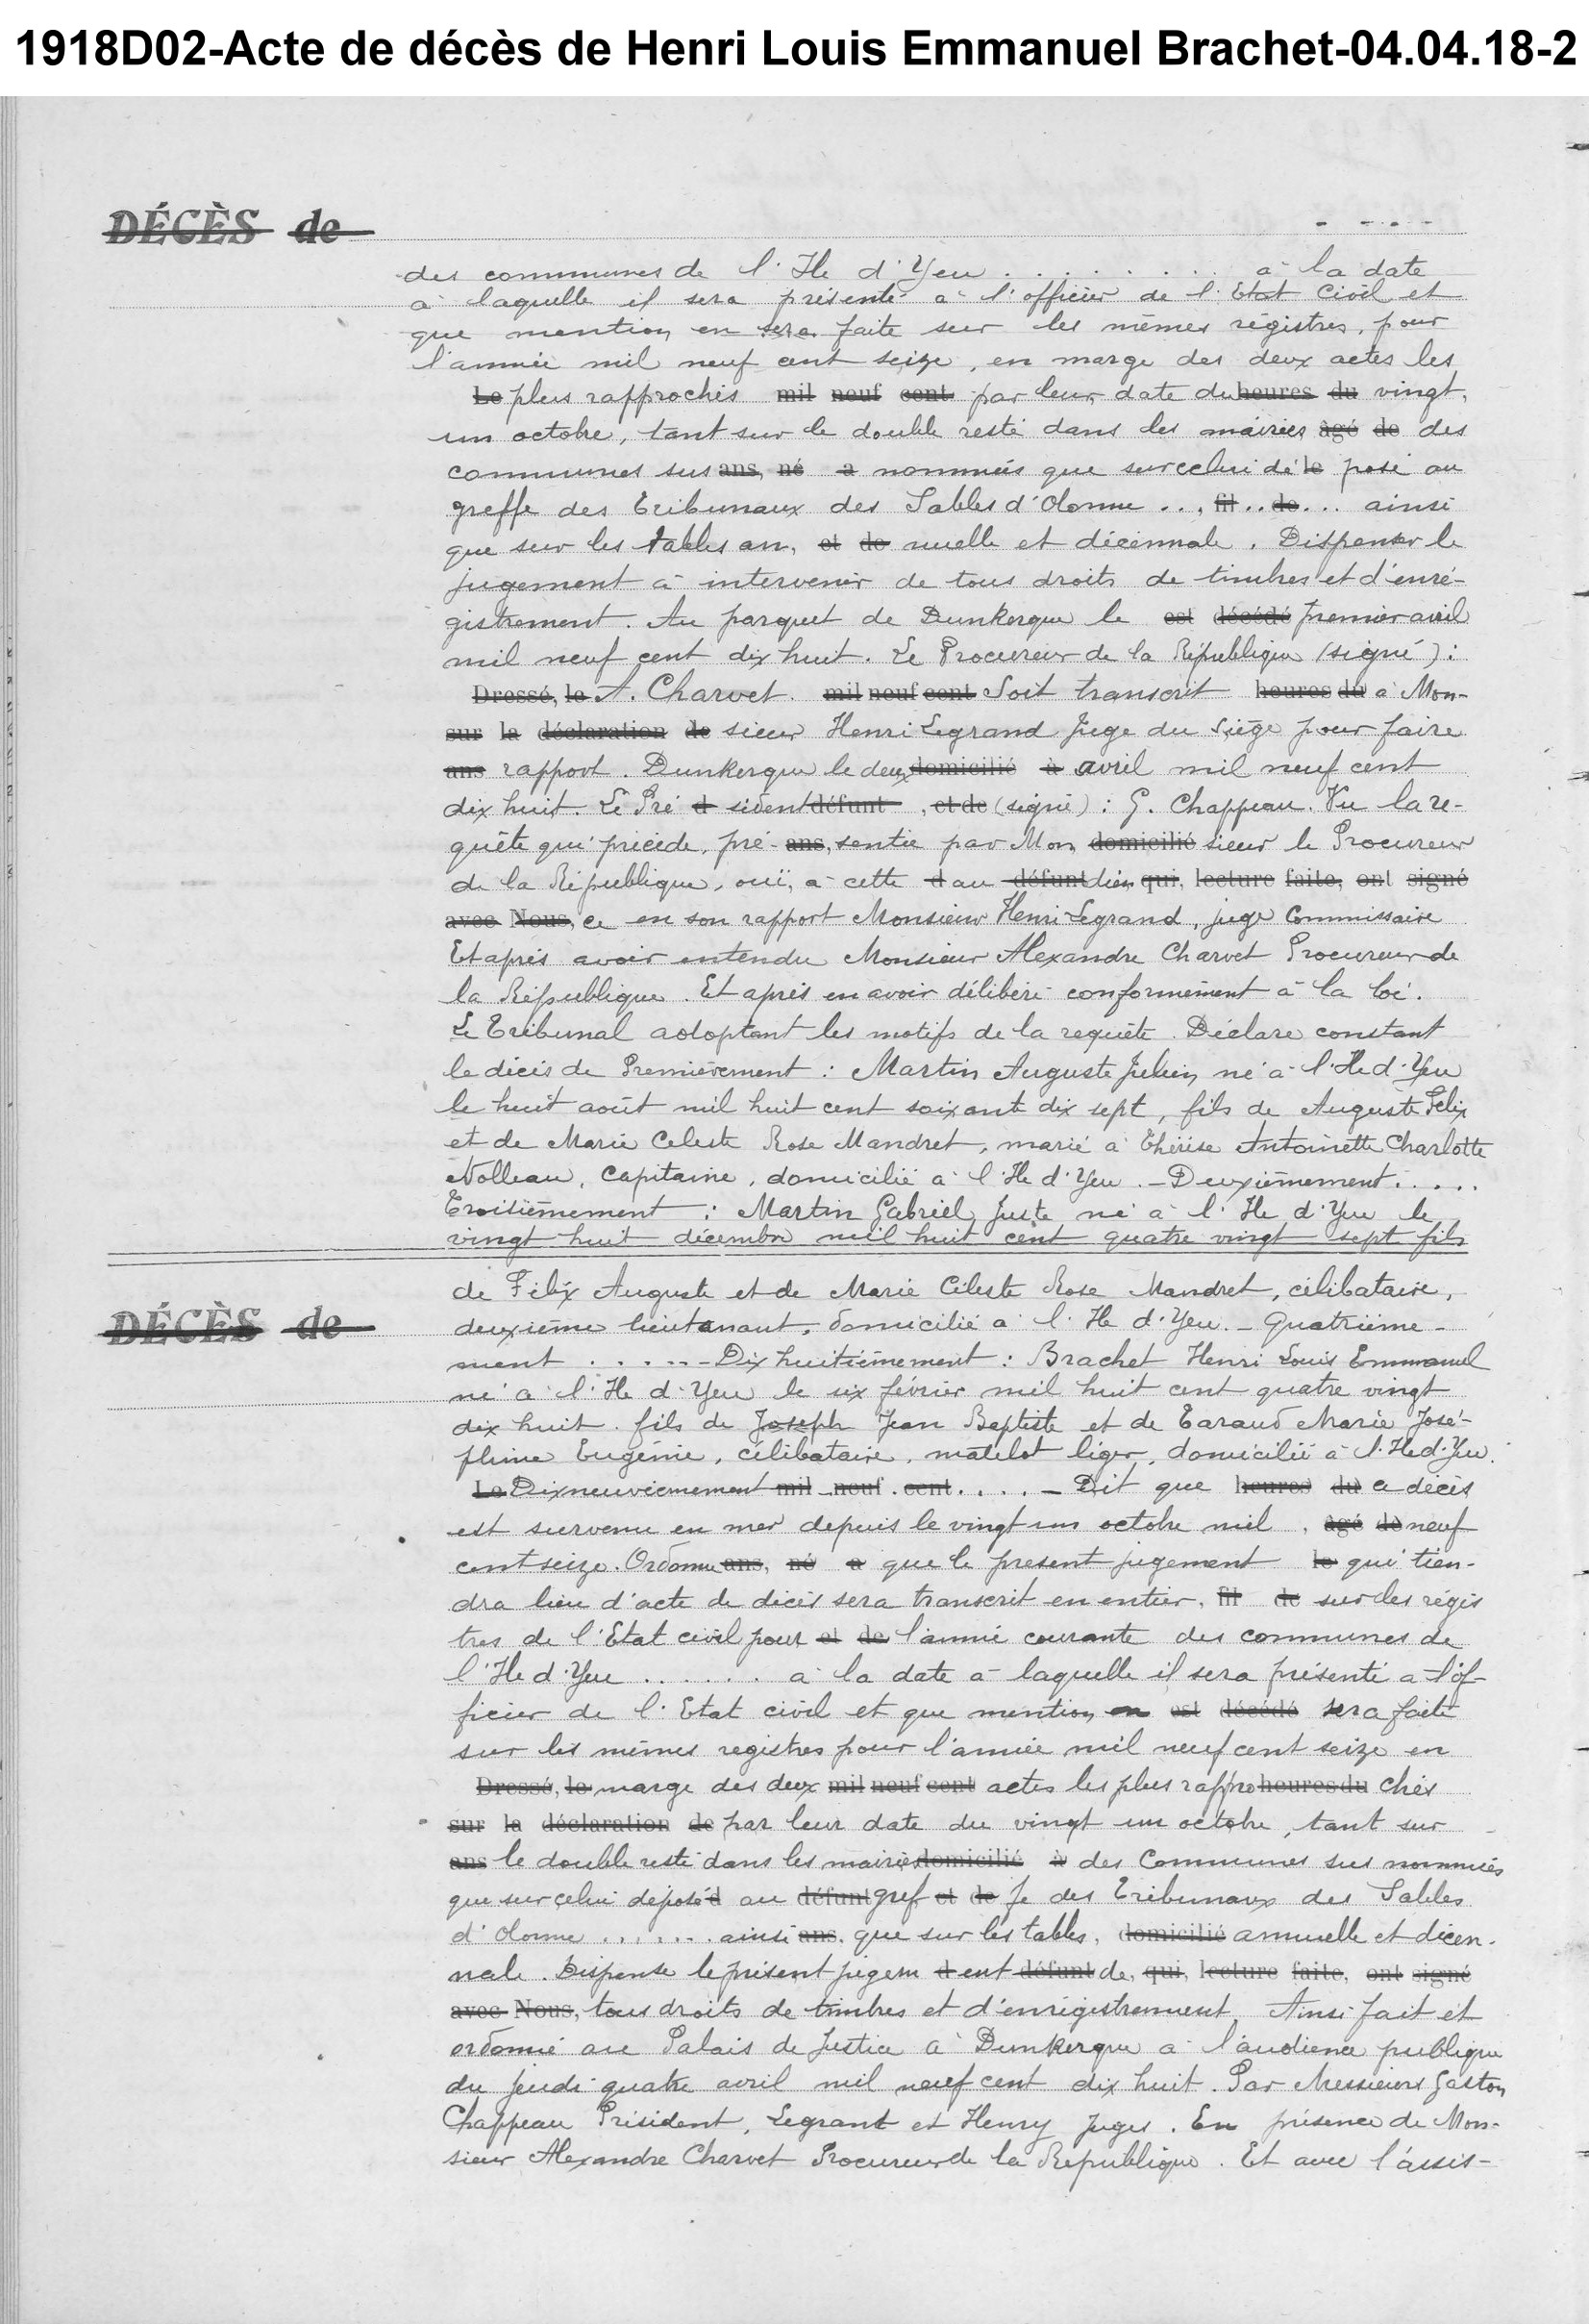 1918D02-Acte de décès de Henri Louis Emmanuel Brachet-04.04.18-2
DÉCÈS de
des communes de l'Ile d'Yeu . . . . . . . . . à la date
à laquelle il sera présenté à l'officier de l'Etat Civil et
que mention en sera faite sur les mêmes régistres, pour
l'année mil neuf cent seize, en marge des deux actes les
Le plus rapprochés mil neuf cent par leur date du heures du vingt
un octobre, tant sur le double resté dans les mairies âgé de des
communes sus ans, né à nommées que sur celui dé le posé au
greffe des Tribunaux des Sables d'Olonne . . , fil . . de . . . ainsi
que sur les tables an, et de nuelle et décennale. Dispenser le
jugement à intervenir de tous droits de timbres et d'enré-
gistrement. Au parquet de Dunkerque le est décédé premier avril
mil neuf cent dix huit. Le Procureur de la République (signé) :
Dressé, le A. Charvet. mil neuf cent Soit transcrit heures du à Mon-
sur la déclaration de sieur Henri Legrand Juge du Siège pour faire
ans rapport. Dunkerque le deux domicilié à avril mil neuf cent
dix huit. Le Pré d sident défunt , et de (signé) : G. Chappeau. Vu la re-
quête qui précède, pré- ans, sentée par Mon domicilié sieur le Procureur
de la République, ouï, à cette d au défunt dien qui, lecture faite, ont signé
avec Nous, ce en son rapport Monsieur Henri Legrand, juge Commissaire
Et après avoir entendu Monsieur Alexandre Charvet Procureur de
la République. Et après en avoir délibéré conformément à la loi.
Le Tribunal adoptant les motifs de la requête. Déclare constant
le décès de Premièrement : Martin Auguste Julien né à l'Ile d'Yeu
le huit août mil huit cent soixante dix sept, fils de Auguste Félix
et de Marie Celeste Rose Mandret, marié à Thérèse Antoinette Charlotte
Nolleau, Capitaine, domicilié à l'Ile d'Yeu. - Deuxièmement . . . . .
Troisièmement : Martin Gabriel Juste né à l'Ile d'Yeu le
vingt huit décembre mil huit cent quatre vingt sept fils
de Félix Auguste et de Marie Céleste Rose Mandret, célibataire,
DÉCÈS de
deuxième lieutenant, domicilié à l'Ile d'Yeu. - Quatrième-
ment . . . . . - Dix huitièmement : Brachet Henri Louis Emmanuel
né à l'Ile d'Yeu le six février mil huit cent quatre vingt
dix huit fils de Joseph Jean Baptiste et de Taraud Marie José-
phine Eugénie, célibataire, matelot léger, domicilié à l'Ile d'Yeu.
Le Dixneuvièmement mil neuf cent . . . . - Dit que heures du ce décès
est survenu en mer depuis le vingt un octobre mil , âgé de neuf
cent seize. Ordonne ans, né à que le présent jugement le qui tien-
dra lieu d'acte de décès sera transcrit en entier, fil de sur les régis
tres de l'Etat civil pour et de l'année courante des communes de
l'Ile d'Yeu . . . . . . à la date à laquelle il sera présenté à l'of-
ficier de l'Etat civil et que mention en est décédé sera faite
sur les mêmes registres pour l'année mil neuf cent seize en
Dressé, le marge des deux mil neuf cent actes les plus rappro heures du chés
sur la déclaration de par leur date du vingt un octobre, tant sur
ans le double resté dans les mairies domicilié à des Communes sus nommées
que sur celui déposé d au défunt gref et de fe des Tribunaux des Sables
d'Olonne . . . . . . ainsi ans, que sur les tables, domicilié annuelle et décen-
nale. Dispense le présent jugem d ent défunt de, qui, lecture faite, ont signé
avec Nous, tous droits de timbres et d'enrégistrement. Ainsi fait et
ordonné au Palais de Justice à Dunkerque à l'audience publique
du jeudi quatre avril mil neuf cent dix huit. Par Messieurs Gaston
Chappeau Président, Legrant et Henry Juges. En présence de Mon-
sieur Alexandre Charvet Procureur de la République. Et avec l'assis-